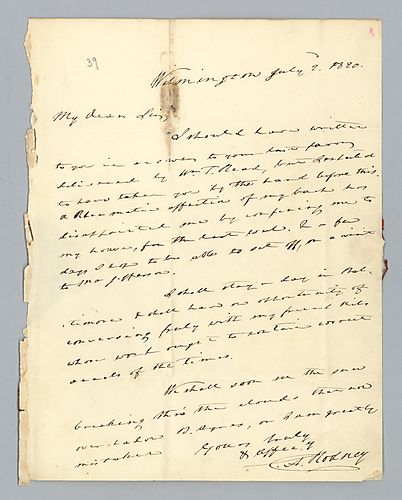 39
x
Wilmington July 2. 1820.
My dear Sir,
I should have written
to you in answer to your last favor
delivered by Wm T. Read, but I expected
to have taken you by the hand before this.
A Rheumatic affection of my back has
disappointed me by confining me to
my house, for the last week. In a few
days I hope to be able to set off, on a visit
to Mr Jefferson.
I shall stay a day in Bal-
timore & shall have an opportunity of
conversing freely with my friend Niles
whose work ought to contain correct
annals of the times.
We shall soon see the sun
breaking thro the clouds that now
overshadow B. Ayres, or I am greatly
mistaken
Yours truly
& Affecy
C. A. Rodney